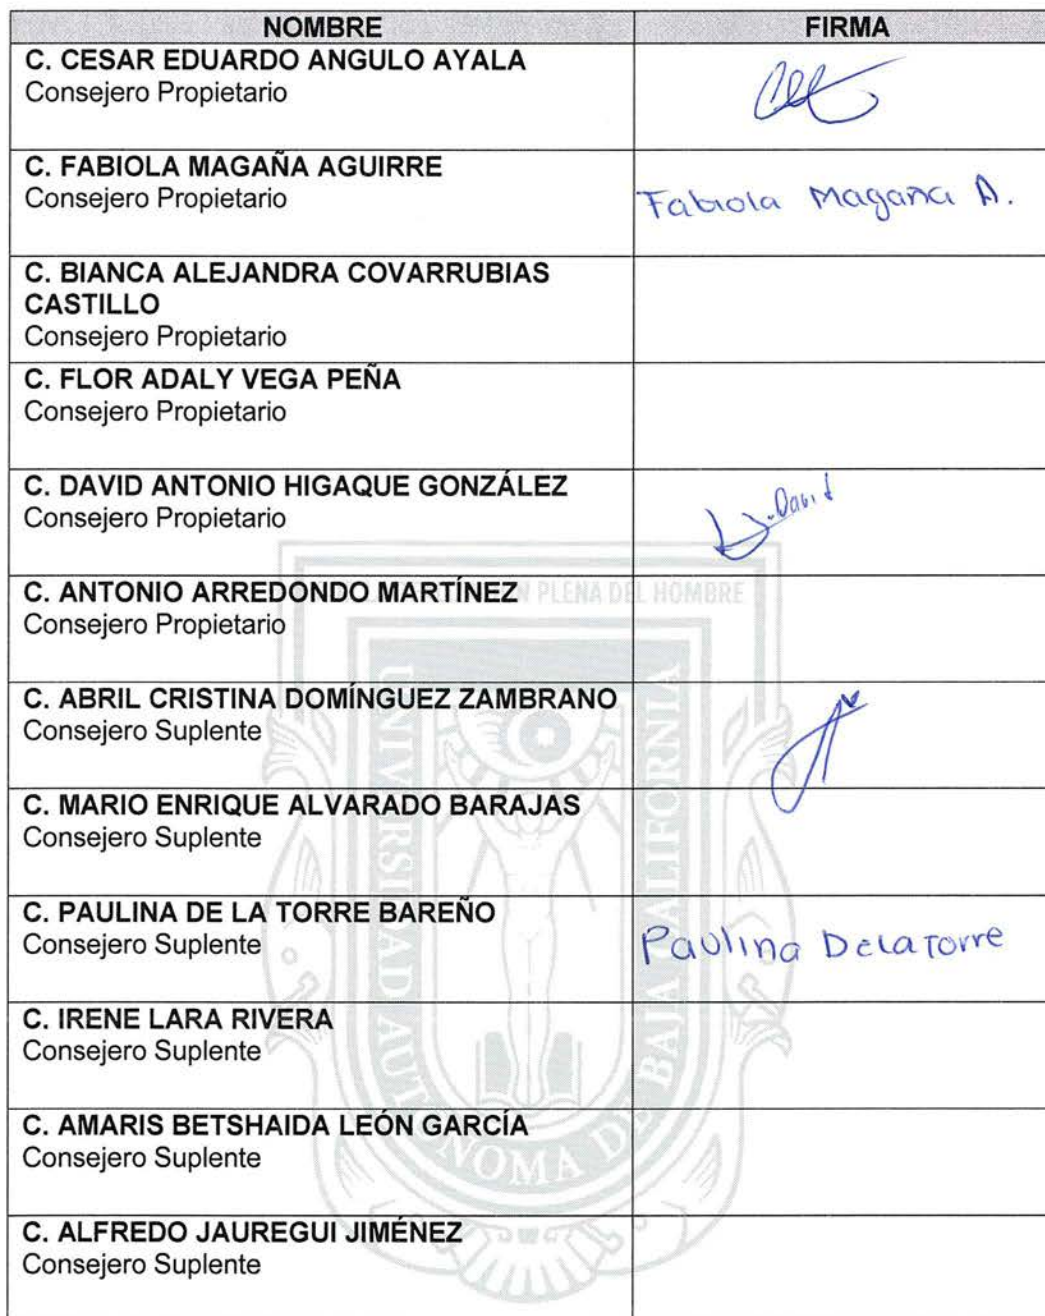 NOMBRE FIRMA
C. CESAR EDUARDO ANGULO AYALA
Consejero Propietario
C. FABIOLA MAGAÑA AGUIRRE
Consejero Propietario
Fabiola Magaña A.
C. BIANCA ALEJANDRA COVARRUBIAS
CASTILLO
Consejero Propietario
C. FLOR ADALY VEGA PEÑA
Consejero Propietario
C. DAVID ANTONIO HIGAQUE GONZÁLEZ
Consejero Propietario
David
C. ANTONIO ARREDONDO MARTÍNEZ
Consejero Propietario
PLENA DEL HOMBRE
C. ABRIL CRISTINA DOMÍNGUEZ ZAMBRANO
Consejero Suplente
C. MARIO ENRIQUE ALVARADO BARAJAS
Consejero Suplente
C. PAULINA DE LA TORRE BAREÑO
Consejero Suplente
Paulina De La Torre
C. IRENE LARA RIVERA
Consejero Suplente
C. AMARIS BETSHAIDA LEÓN GARCÍA
Consejero Suplente
C. ALFREDO JAUREGUI JIMÉNEZ
Consejero Suplente
UNIVERSIDAD AUTONOMA DE BAJA CALIFORNIA